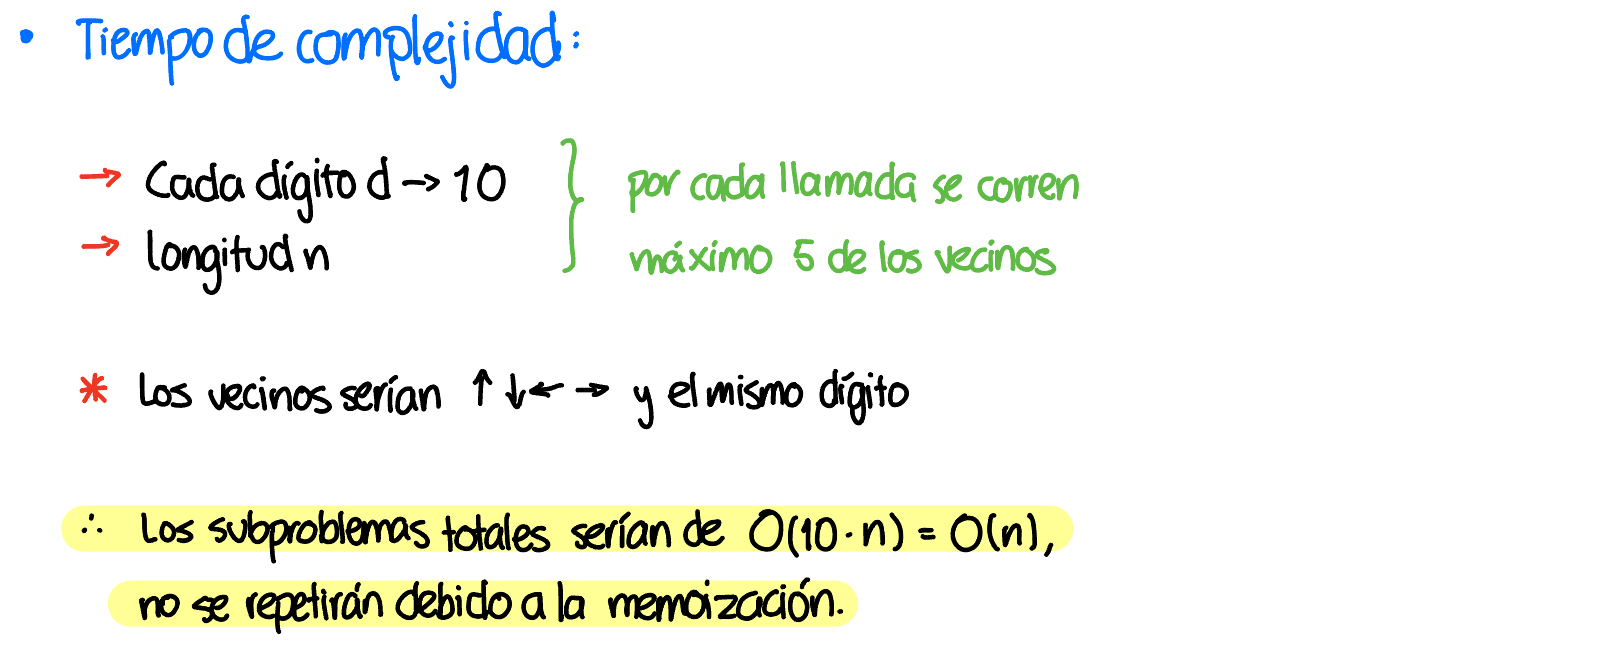 • Tiempo de complejidad:
→ Cada dígito d → 10
→ longitud n
por cada llamada se corren
máximo 5 de los vecinos
* Los vecinos serían ↑ ↓ ← → y el mismo dígito
∴ Los subproblemas totales serían de O(10·n) = O(n),
no se repetirán debido a la memoización.